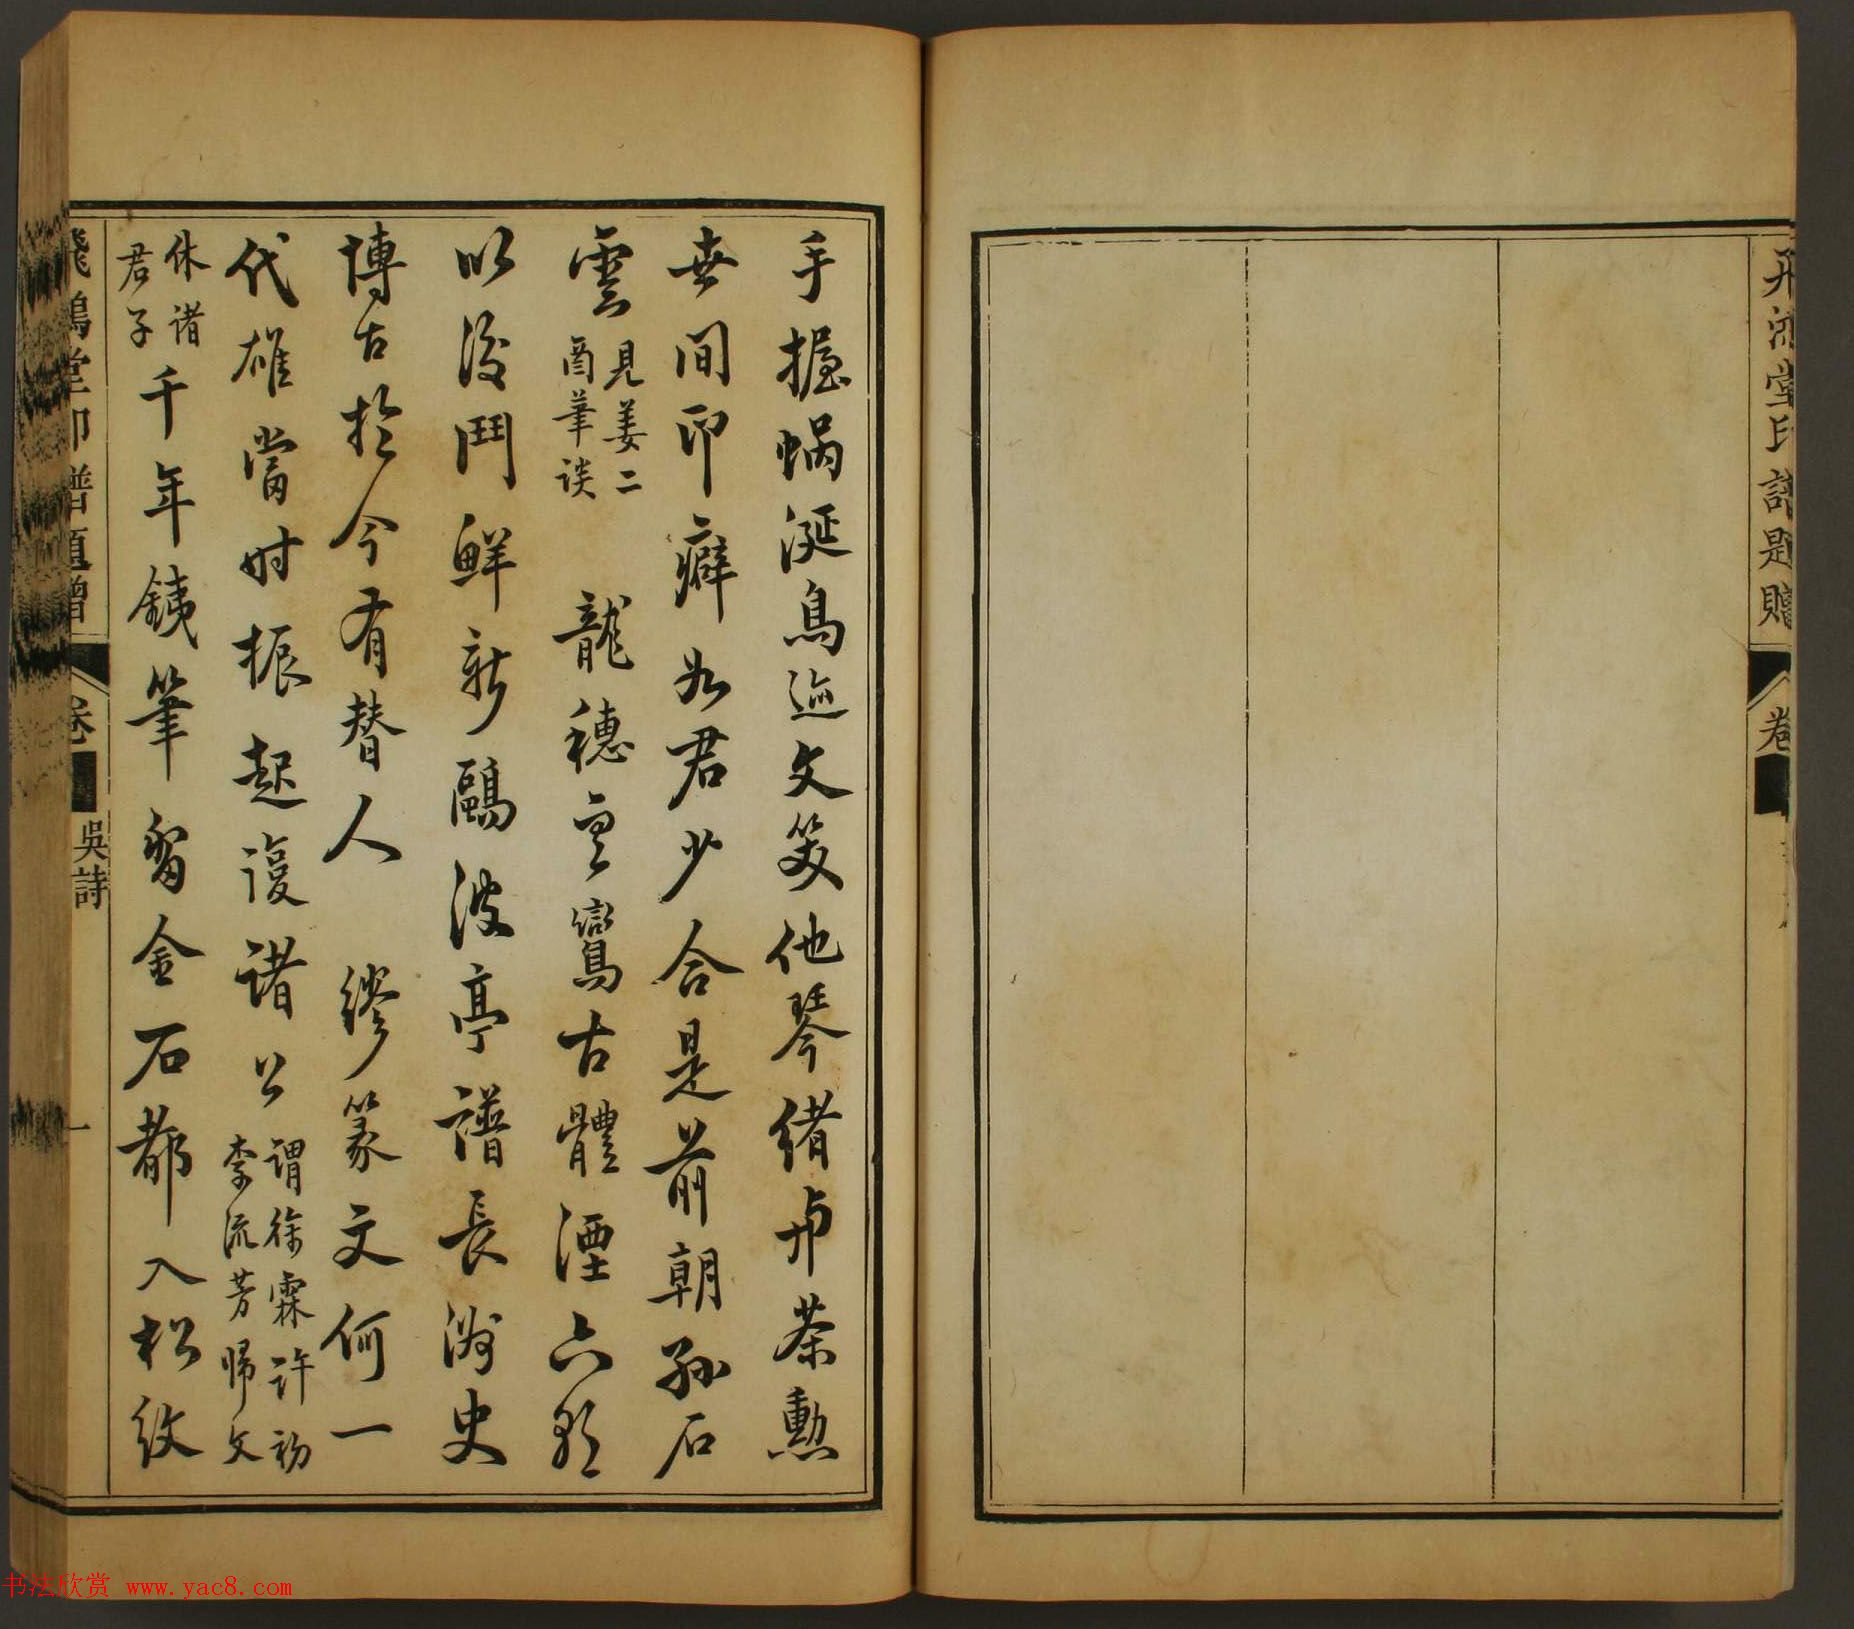 飛鴻堂印譜題贈
卷
手握蝸涎鳥迹文笑他琴緒与茶勳
世間印癖如君少合是前朝孫石
雲 見姜二
酉筆談
龍穗雲鸞古體湮六朝
以後鬥鮮新鷗波亭譜長洲史
博古於今有替人 繆篆文何一
代雄當時振起復諸公
謂徐霖許初
李流芳歸文
休諸
君子
千年銕筆留金石都入松紋
飛鴻堂印譜題贈
卷
吳詩
一
书法欣赏 www.yac8.com